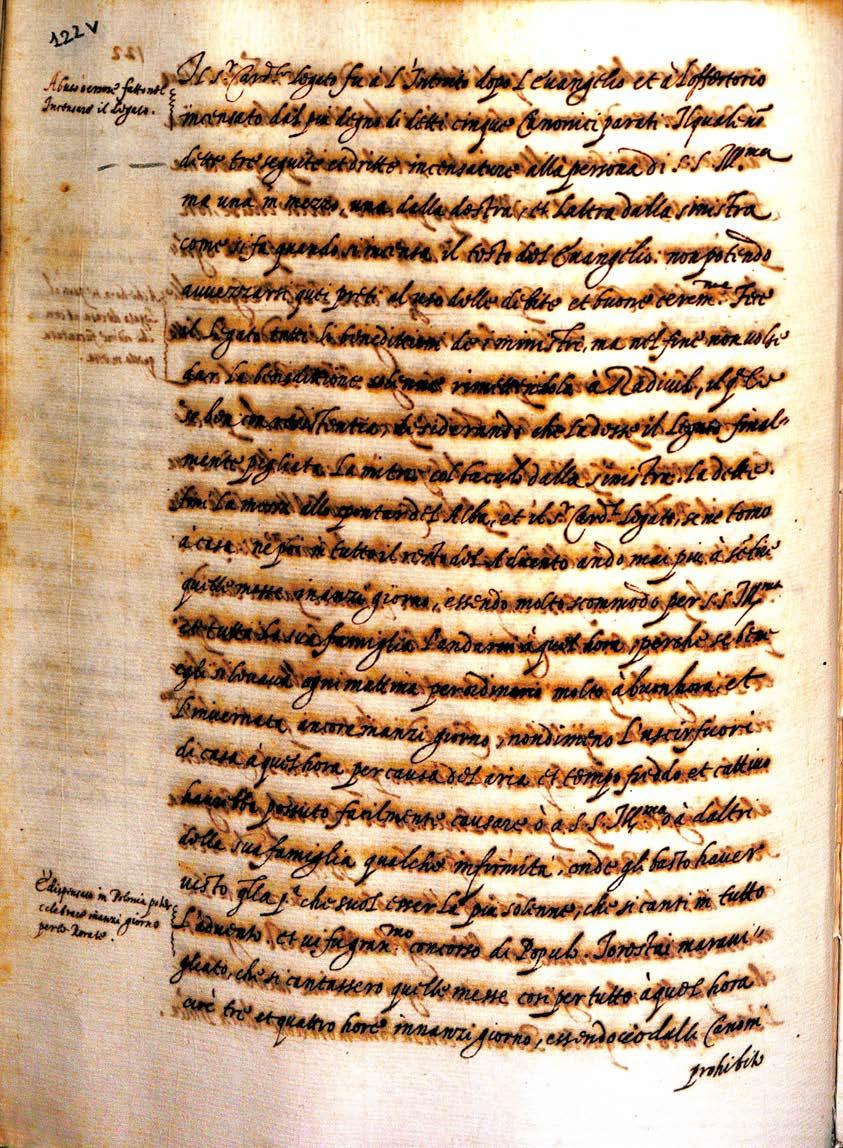 122v
Abuso overo fatto nel
Incensare il Legato.
Il S.r Card.le Legato fu à l'Introito dopo l'evangelio et à l'offertorio
incensato dal piu degno di detti cinque Canonici parati. Il quale nõ
dette tre seguite et dritte incensature alla persona di S.S. Ill.ma
ma una in mezzo, una dalla destra, et l'altra dalla sinistra
come si fa quando s'incensa il testo del Evangelio: non potendo
avvezzarsi quei preti al uso delle debite et buone cerem.nie Fece
il Legato tutte le benedittioni de i ministri, ma nel fine non volse
dar la benedittione solenne rimettendola à Radivil, il q.le
se ben con resistentia, desiderando che la desse il Legato final=
mente pigliata la mitra col baculo dalla sinistra la dette.
Finì la messa allo spontar del Alba, et il S.r Card.le Legato, se ne torno
à casa. ne poi in tutto il resto del Advento ando mai piu à
quelle messe inanzi giorno, essendo molto scommodo per S.S. Ill.ma
et tutta la sua famiglia l'andarvi à quel hora, perche se bene
egli si levava ogni mattina per ordinario molto à buon hora, et
l'invernata ancora inanzi giorno, nondimeno l'uscir fuori
di casa à quel hora per causa del aria et tempo freddo et cattivo
haverebbe possuto facilmente causare ò a S.S. Ill.ma ò à d'altri
della sua famiglia qualche infirmità, onde gli basto haver
visto q.lla p.a che suol esser la piu solenne, che si canti in tutto
l'advento. et vi fu gran.mo concorso de Popolo. Io restai maravi=
gliato, che si cantassero quelle messe cosi per tutto à quel hora
cioè tre et quattro hore innanzi giorno, essendo ciò dalli Canoni
prohibito
È dispensato in Polonia poter
celebrare inanzi giorno
per le Rorate.